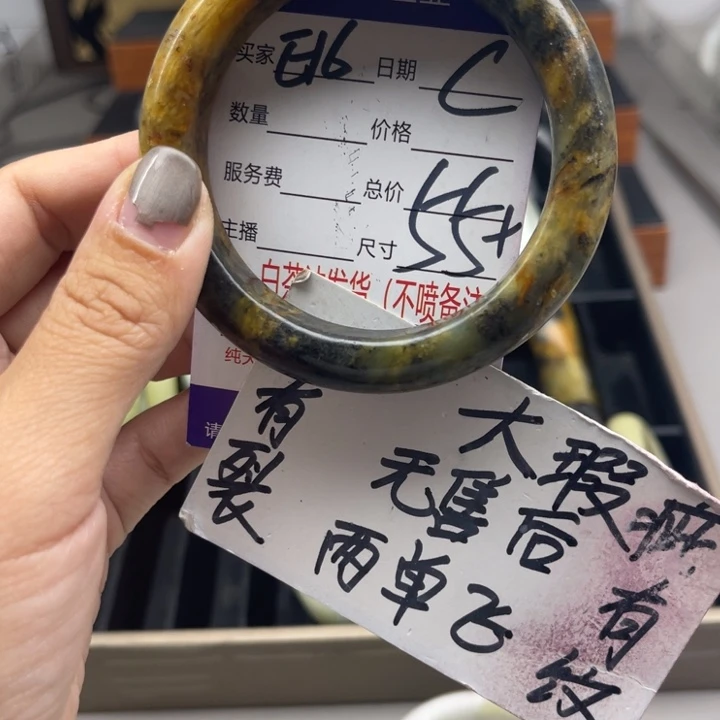 买家 E16 日期 C
数量 价格
服务费 总价
主播 尺寸 55+
白茶油发货（不喷备注
纯天
请
有裂
大瑕疵有纹
无售后
两单飞